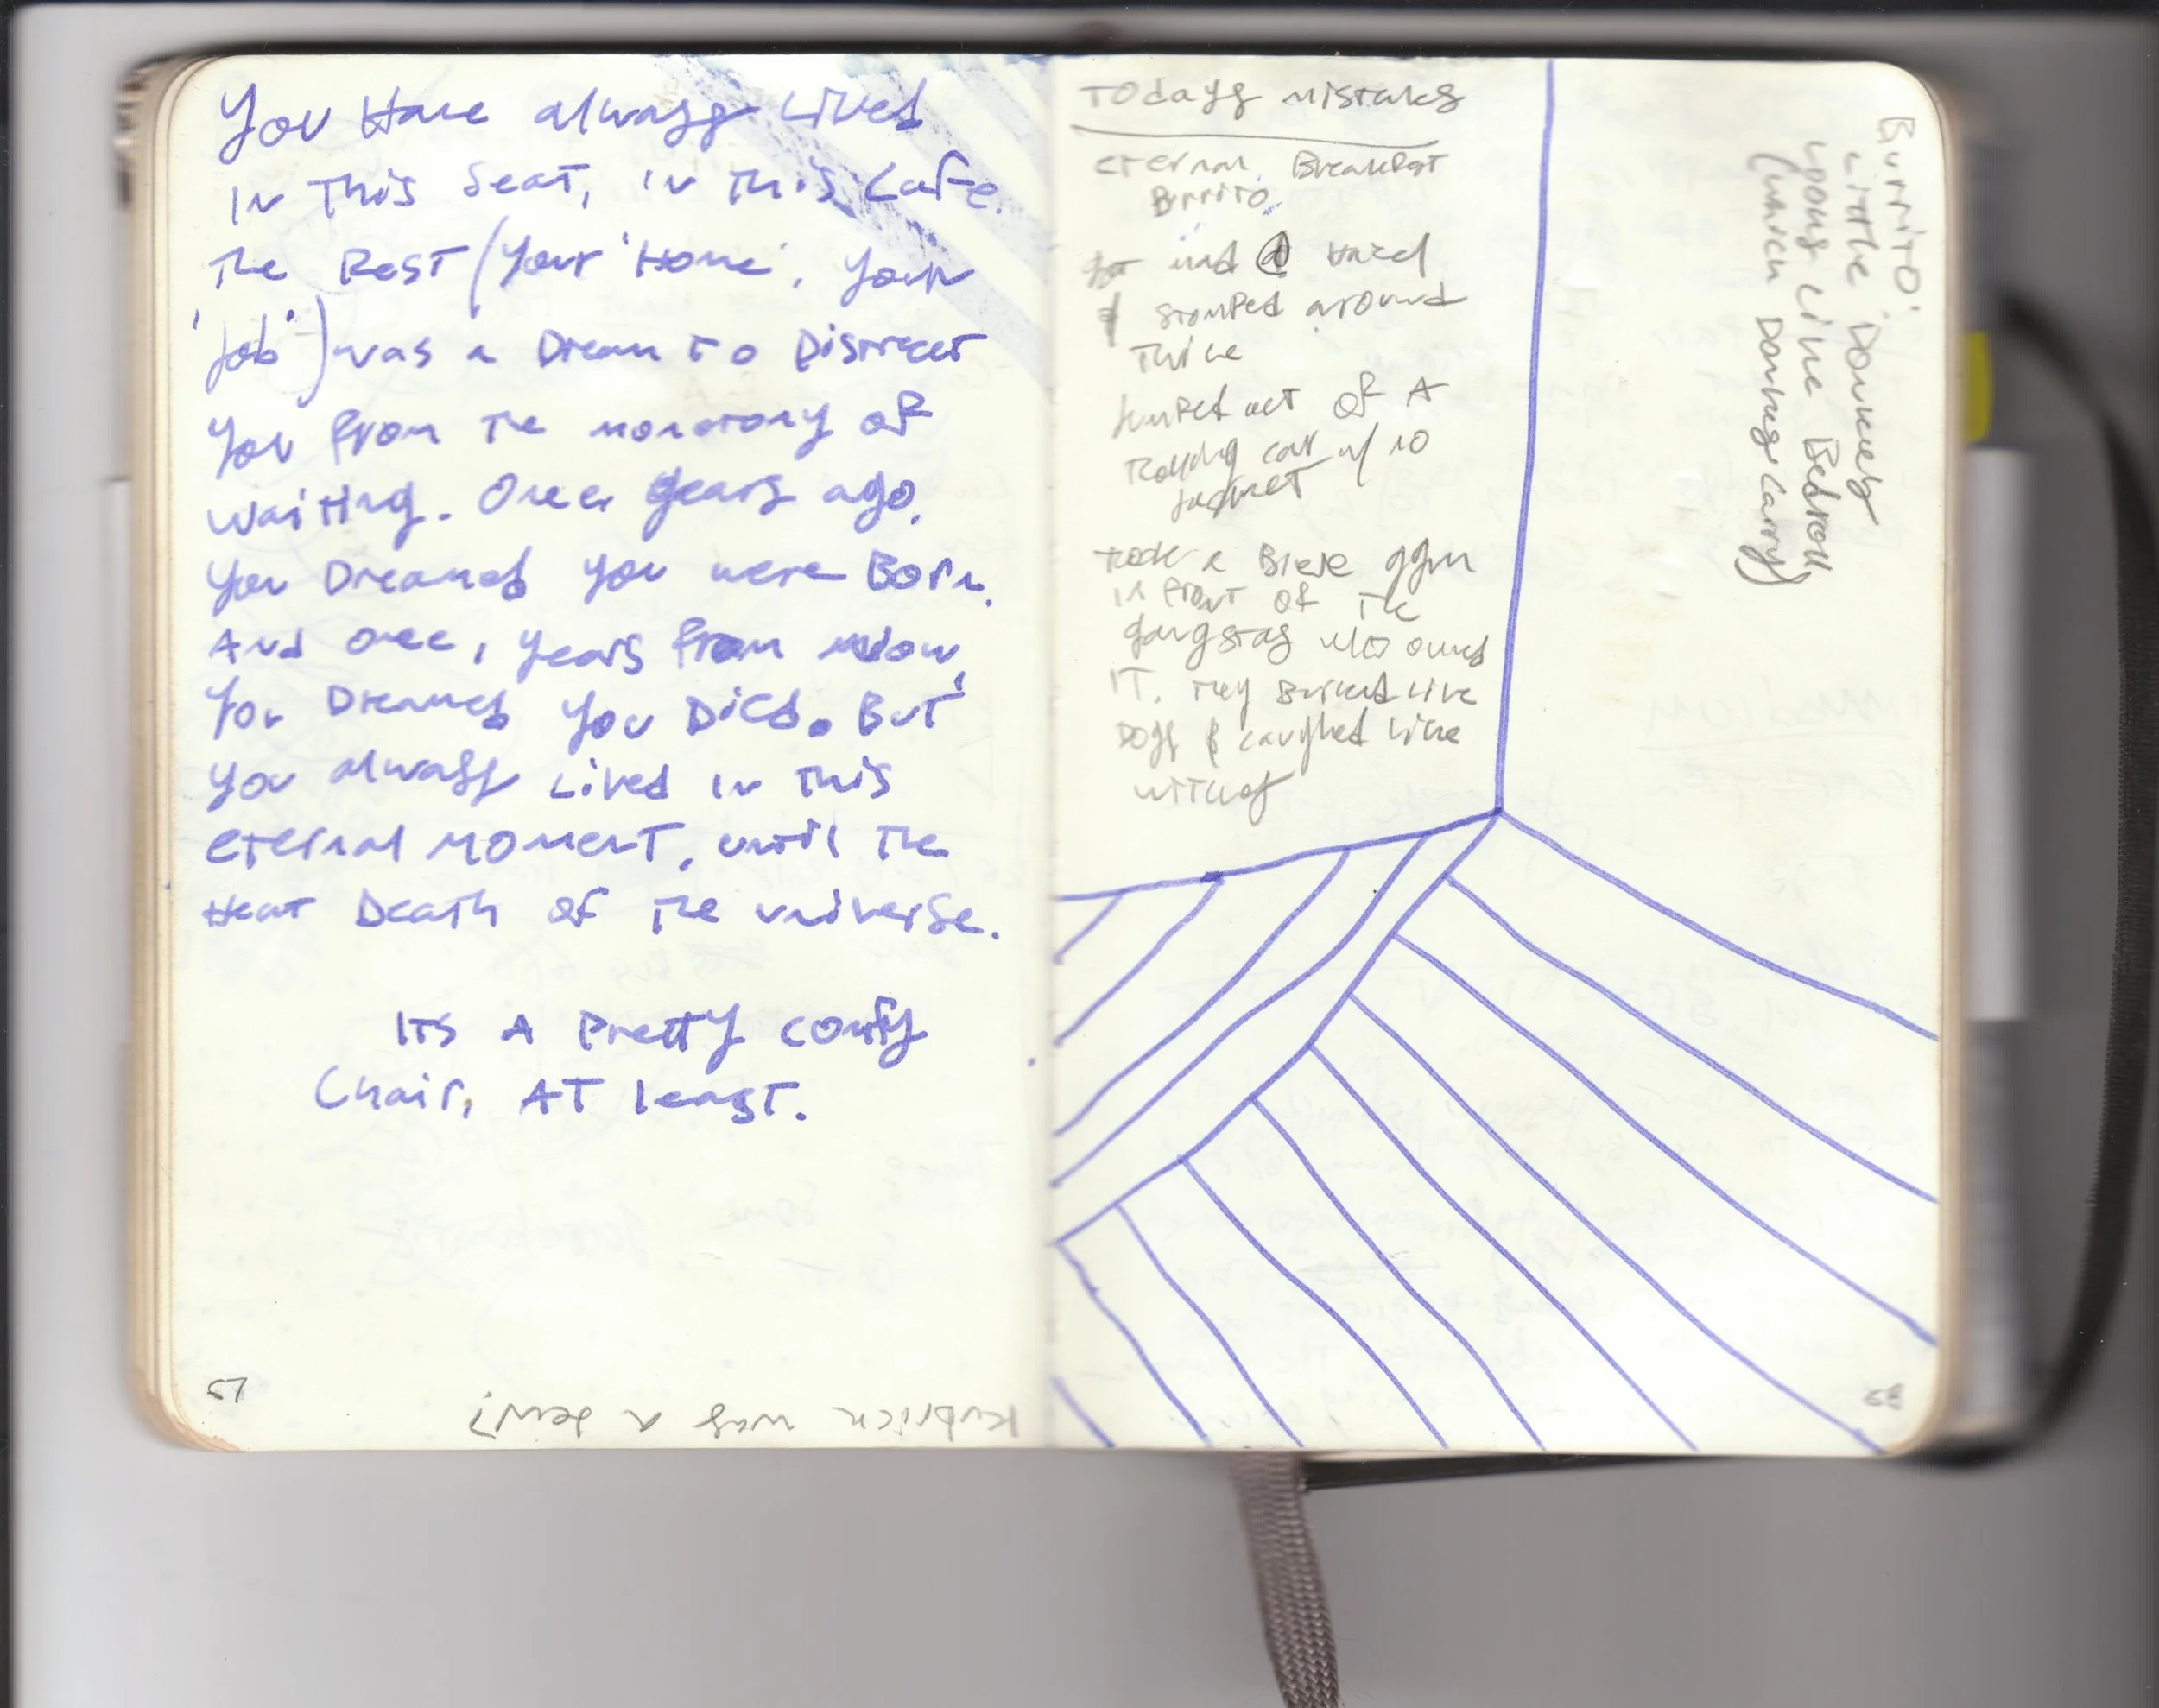 You Have always Lived
In This Seat, in This Cafe.
The Rest (Your 'Home', Your
'job') was a Dream to Distract
You from The monotony of
Waiting. Once, years ago,
You Dreamed you were Born.
And once, years from now,
You Dreamed You Died. But
You always Lived in This
eternal moment, until The
Heat Death of The universe.
Its A Pretty comfy
Chair, AT least.
57
Kubrick was a Jew?
Todays mistakes
eternal Breakfast
Burrito.
Got mad @ Hazel
& stomped around
Twice
Jumped out of A
car w/ no
took a
in front of The
gangstas who owned
IT. They Barked Like
Dogs & Laughed Like
witches
Burrito:
Little Donkey
Looks Like Bedroll
(which Donkeys Carry)
58